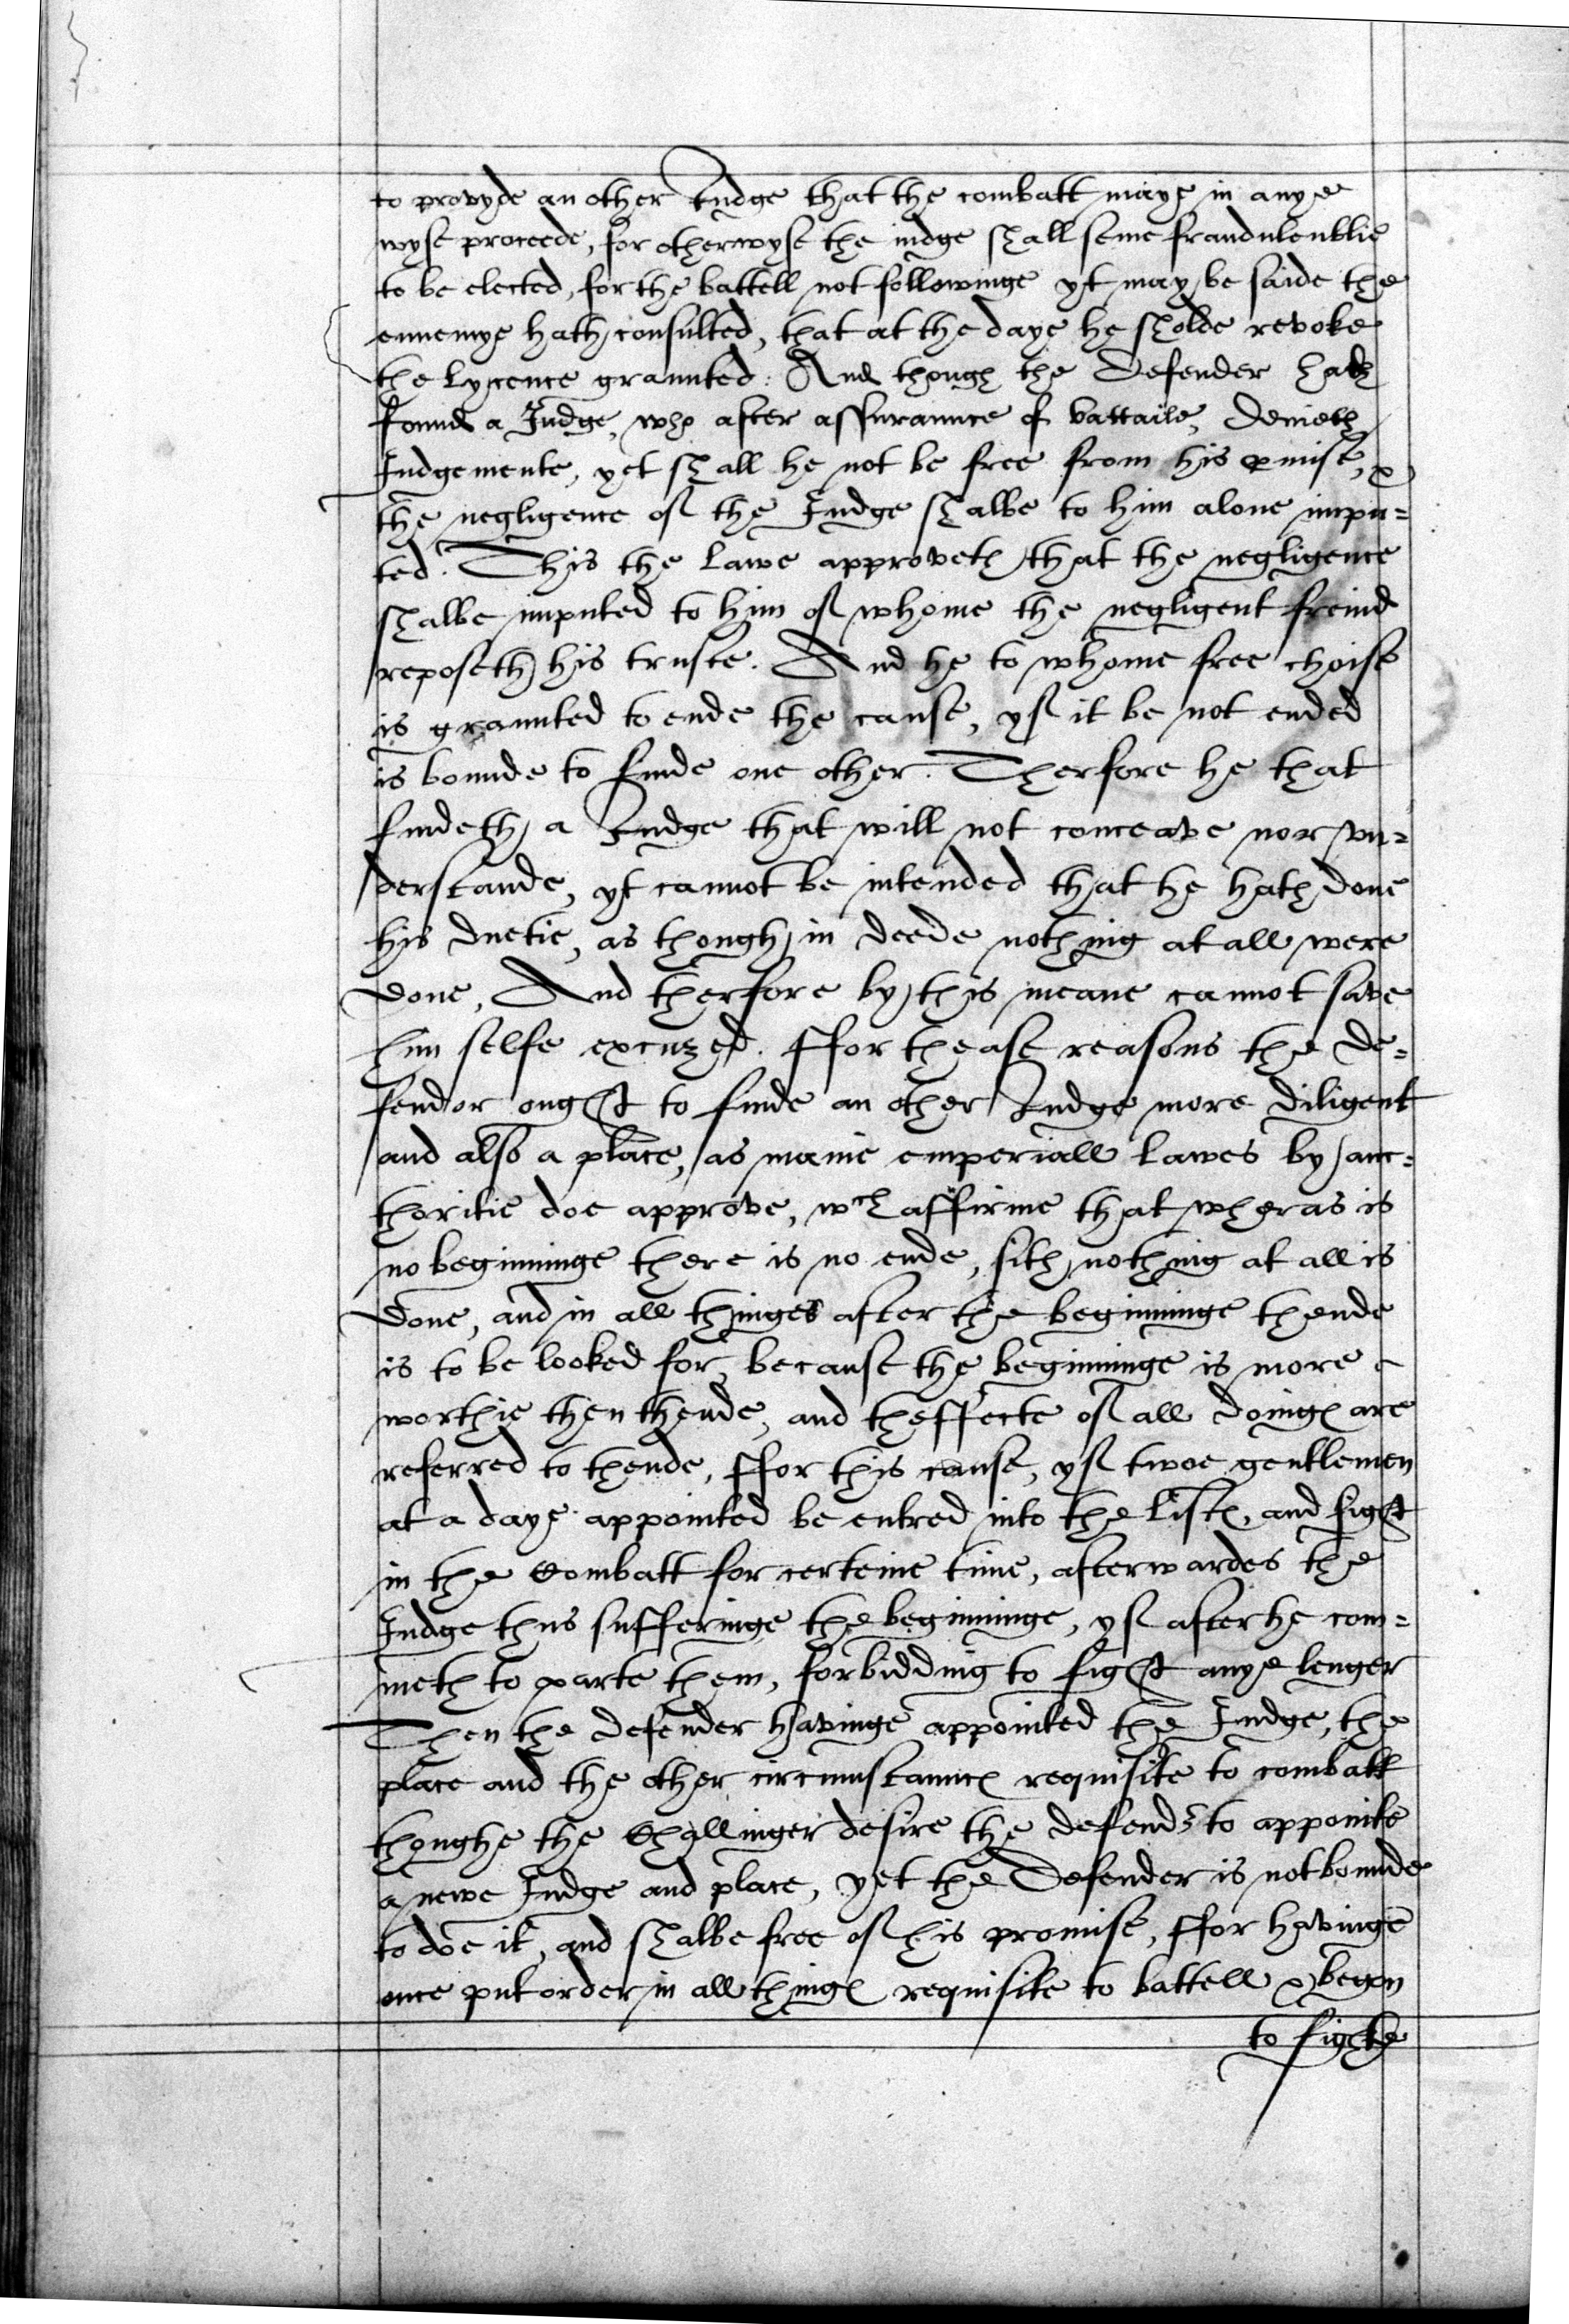 to provyde an other Iudge that the combatt maye in anye
wyse proceede, for otherwyse the iudge shall seme fraudulentlie
to be elected, for the battell not followinge yt may be saide the
ennemye hath consulted, that at the daye he sholde revoke
the Lycence graunted: And though the Defender hath
found a Iudge, who after assuraunce of battaile, Denieth
Iudgemente, yet shall he not be free from his ꝑmise, &
the negligence of the Iudge shalbe to him alone impu=
ted. This the Lawe approveth that the negligence
shalbe imputed to him of whome the negligent freind
reposeth his truste. And he to whome free choise
is graunted to ende the cause, yf it be not ended
is bounde to finde one other. Therfore he that
findeth a Iudge that will not conceave nor vn=
derstande, yt cannot be intended that he hath done
his duetie, as though in deede nothing at all were
done, And therfore by this meane cannot save
him selfe excuzed. Ffor thease reasons the de=
fendor ought to finde an other Iudge more diligent
and also a place, as manie emperiall Lawes by auc=
thoritie doe approve, wch affirme that wheras is
no beginninge there is no ende, sith nothing at all is
done, and in all thinges after the beginninge thende
is to be looked for, because the beginninge is more
worthie then thende, and theffecte of all doinges are
referred to thende, Ffor this cause, yf twoe gentlemen
at a daye appointed be entred into the Listes, and fight
in the Combatt for certeine time, afterwardes the
Iudge thus sufferinge the beginninge, yf after he com=
meth to parte them, forbidding to fight anye lenger
Then the defender havinge appointed the Iudge, the
place and the other circumstaunces requisite to combatt
thoughe the Challinger desire the defendr to appointe
a newe Iudge and place, yet the Defender is not bounde
to doe it, and shalbe free of his promise, Ffor havinge
once put order in all thinges requisite to battell & begon
to fighte